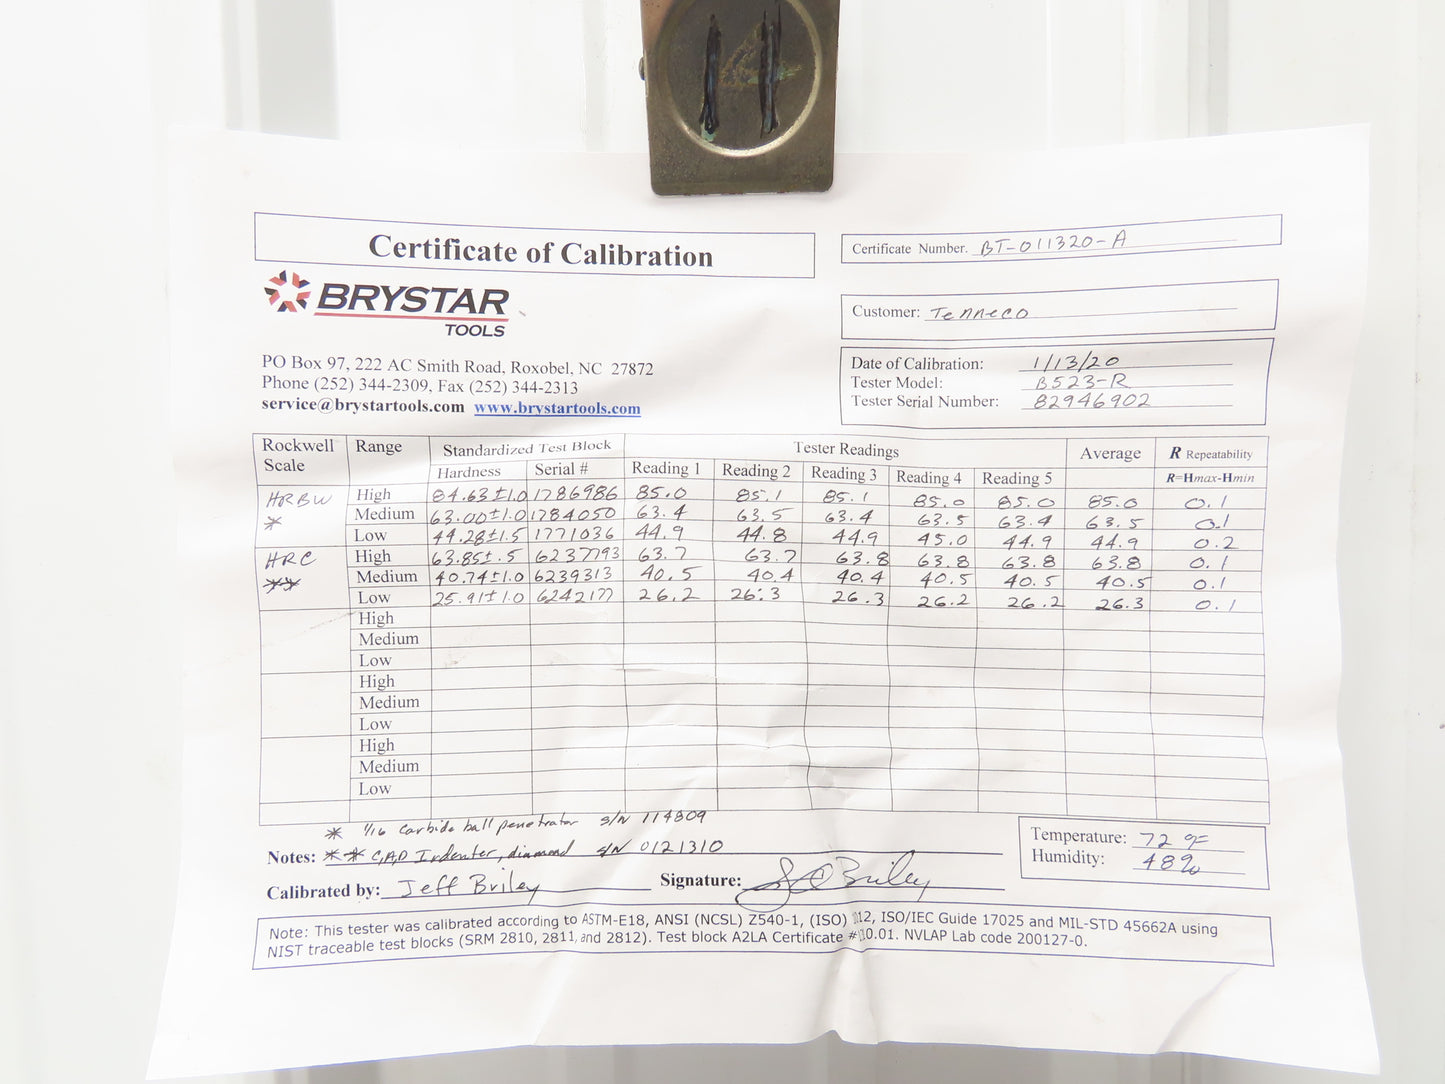 Certificate of Calibration
Certificate Number. BT-011320-A
BRYSTAR
TOOLS
Customer: Tenneco
PO Box 97, 222 AC Smith Road, Roxobel, NC 27872
Phone (252) 344-2309, Fax (252) 344-2313
service@brystartools.com www.brystartools.com
Date of Calibration: 1/13/20
Tester Model: B523-R
Tester Serial Number: 82946902
Rockwell Scale Range Standardized Test Block Tester Readings Average R Repeatability
Hardness Serial # Reading 1 Reading 2 Reading 3 Reading 4 Reading 5 R=Hmax-Hmin
HRBW High 84.63±1.0 1786986 85.0 85.1 85.1 85.0 85.0 85.0 0.1
* Medium 63.00±1.0 1784050 63.4 63.5 63.4 63.5 63.4 63.5 0.1
Low 44.28±1.5 1771036 44.9 44.8 44.9 45.0 44.9 44.9 0.2
HRC High 63.85±.5 6237793 63.7 63.7 63.8 63.8 63.8 63.8 0.1
** Medium 40.74±1.0 6239313 40.5 40.4 40.4 40.5 40.5 40.5 0.1
Low 25.91±1.0 6242177 26.2 26.3 26.3 26.2 26.2 26.3 0.1
High
Medium
Low
High
Medium
Low
High
Medium
Low
* 1/16 carbide ball penetrator S/N 114809
Notes: ** C,A,D Indenter, diamond S/N 0121310
Temperature: 72 °F
Humidity: 48%
Calibrated by: Jeff Briley Signature: Briley
Note: This tester was calibrated according to ASTM-E18, ANSI (NCSL) Z540-1, (ISO) 12, ISO/IEC Guide 17025 and MIL-STD 45662A using
NIST traceable test blocks (SRM 2810, 2811, and 2812). Test block A2LA Certificate # 10.01. NVLAP Lab code 200127-0.